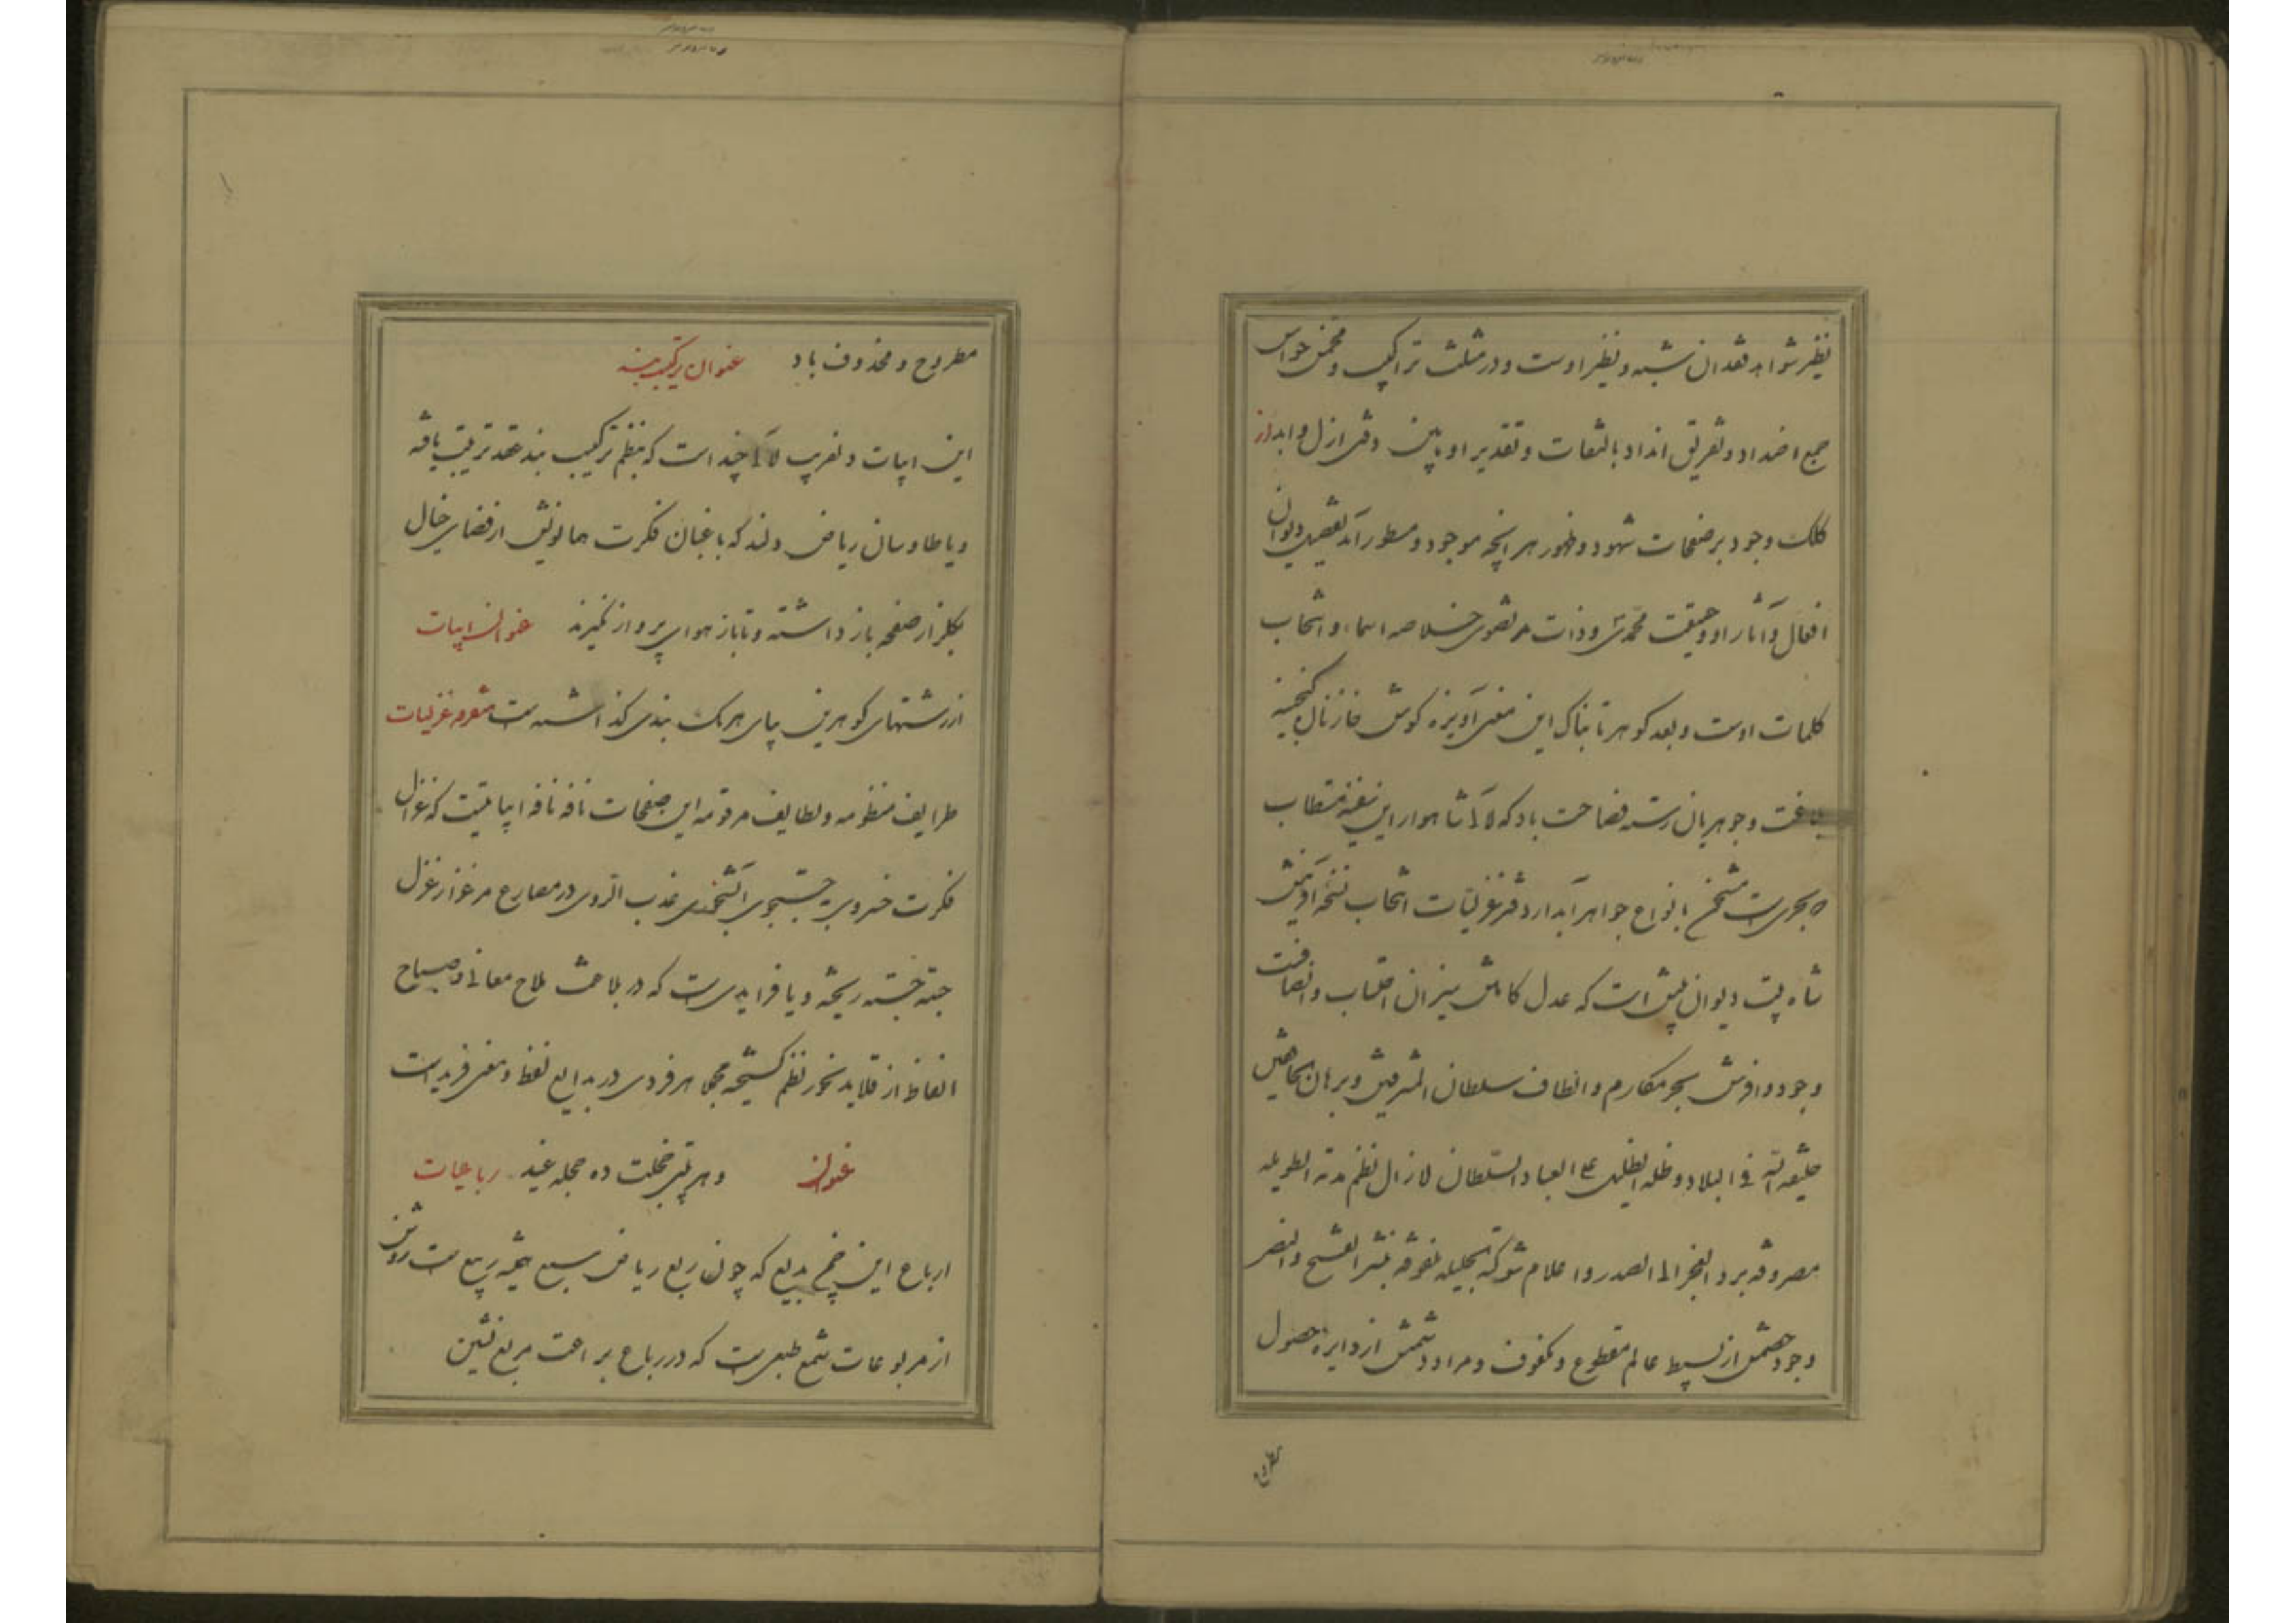 نظیر شواهد فقدان شبه و نظیر اوست و در مثلث تراکیب و مخمس حواس
جمع اضداد و تفریق انداد بالتفات و تقدیر او پایش دفتر ازل و ابد از
کلک وجود بر صفحات شهود و ظهور هر انچه موجود و مسطور آمد تفصیل دیوان
افعال و آثار او و حقیقت محمدی و ذات مرتضوی خلاصه اسماء و انتخاب
کلمات اوست و بعد کوهر تابناک این معنی آویزه کوش خازنان کنجینه
بلاغت و جوهریان رسته فصاحت باد که لآلی شاهوار این سفینه مستطاب
که بحری است مشحن بانواع جواهر آبدار دفتر غزلیات انتخاب نسخه آفرینش
شاه بیت دیوان بینش است که عدل کاملش میزان احتساب و انصافست
وجود وافرش بحر مکارم و الطاف سلطان المشرقین و برهان الخافقین
خلیفة الله فی البلاد و ظله الظلیل علی العباد السلطان لازال نظم مدته الطویله
مصروفه برد العجز الی الصدر و اعلام شوکته الجلیله مقرونه بنشر الفتح والنصر
وجود خصمش از بسیط عالم مقطوع و مکفوف و مراد دشمنش از دایره حصول
مطروح
مطروح و محذوف باد عنوان ترکیب بند
این ابیات دلفریب لآلی چند است که بنظم ترکیب بند عقد ترتیب یافته
و یا طاوسان ریاض دلند که باغبان فکرت همایونش از فضای خیال
بکلزار صفحه باز داشته و تا باز هوای پرواز نکیرند عنوان ابیات
از رشتهای کوهرین بپای هریک بندی کذاشته است متفرقه غزلیات
طرایف منظومه و لطایف مرقومه این صفحات نافه نافه ابیاتیست که غزال
فکرت خسروی بجستجوی آبشخوری عذب الروی در مصارع مرغزار غزل
جسته جسته ریخته و یا فرایدی است که در بلاغت ملاح معانی و صباح
الفاظ از قلاید نحور نظم کسیخته مجملا هر فردی در بدایع لفظ و معنی فرید است
عنوان و هر بیتی خجلت ده حجله عید رباعیات
ارباع این بدیع که چون ربع ریاض ربیع است روشن
از مربوعات شمع طبعی است که در رباع براعت مربع نشین